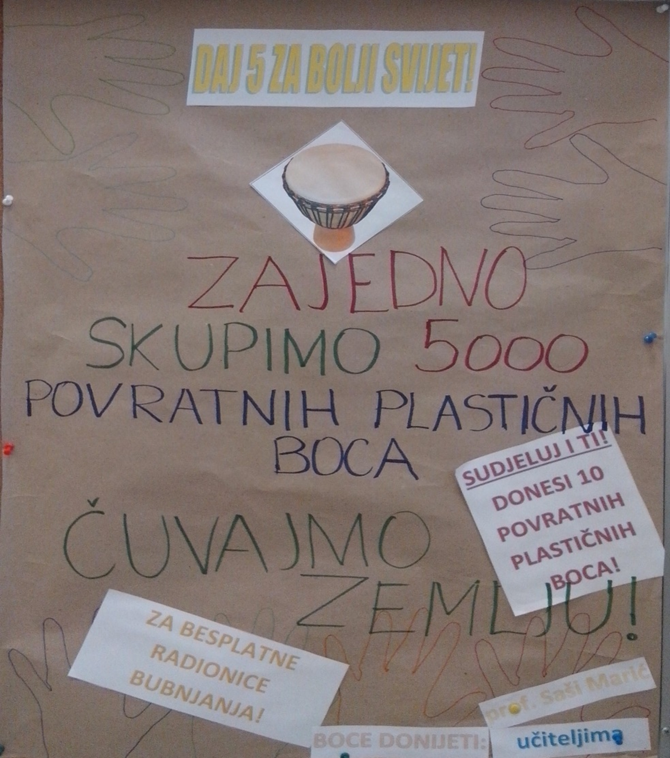 DAJ 5 ZA BOLJI SVIJET!
ZAJEDNO
SKUPIMO 5000
POVRATNIH PLASTIČNIH
BOCA
SUDJELUJ I TI!
DONESI 10
POVRATNIH
PLASTIČNIH
BOCA!
ČUVAJMO
ZEMLJU!
ZA BESPLATNE
RADIONICE
BUBNJANJA!
BOCE DONIJETI:
prof. Saši Marić
učiteljima